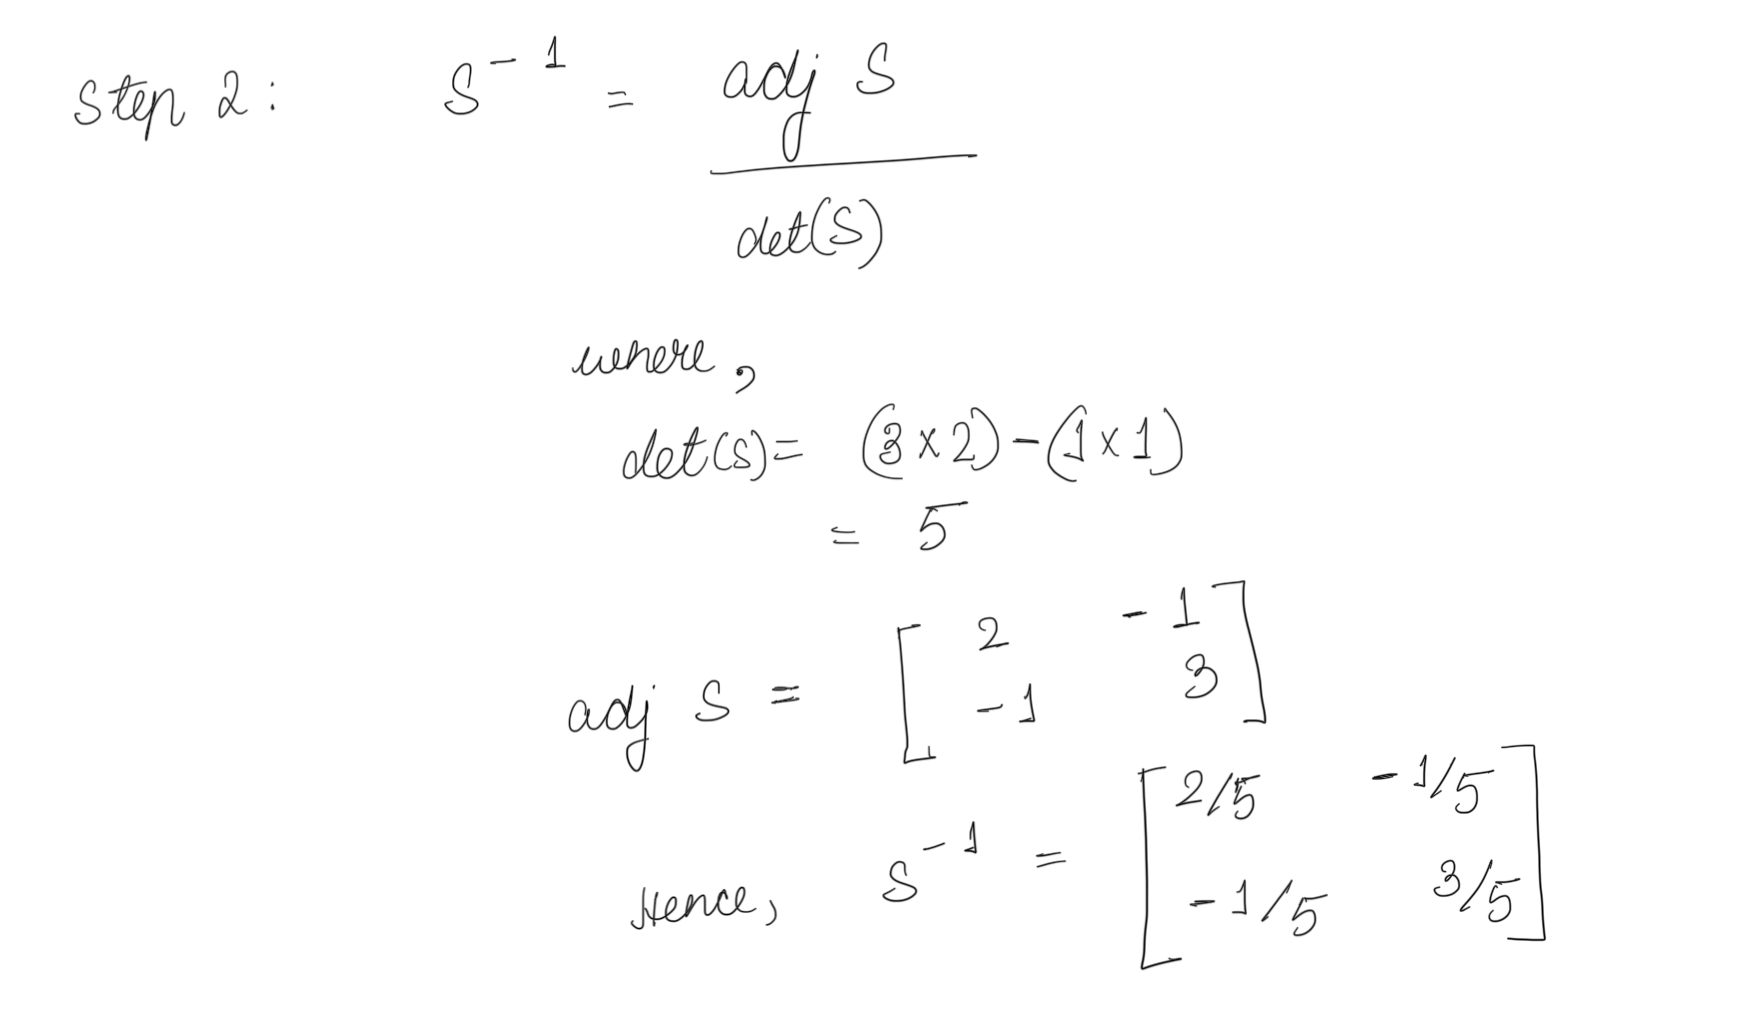 Step 2: S⁻¹ = adj S / det(S)
where,
det(S) = (3 × 2) - (1 × 1)
= 5
adj S = [ 2 -1
-1 3 ]
Hence, S⁻¹ = [ 2/5 -1/5
-1/5 3/5 ]